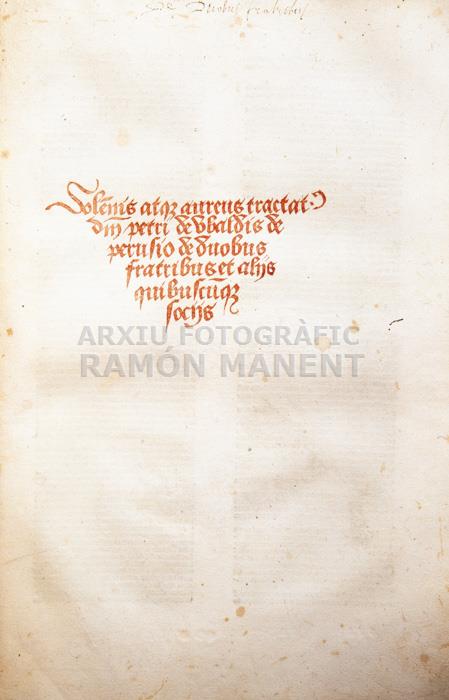 De Duobus fratribus
Solēnis atqꝫ aureus tractatꝰ
dnj petri de Vbaldis de
perusio de duobus
fratribus et alijs
quibuscūqꝫ
socijs
ARXIU FOTOGRÀFIC
RAMÓN MANENT